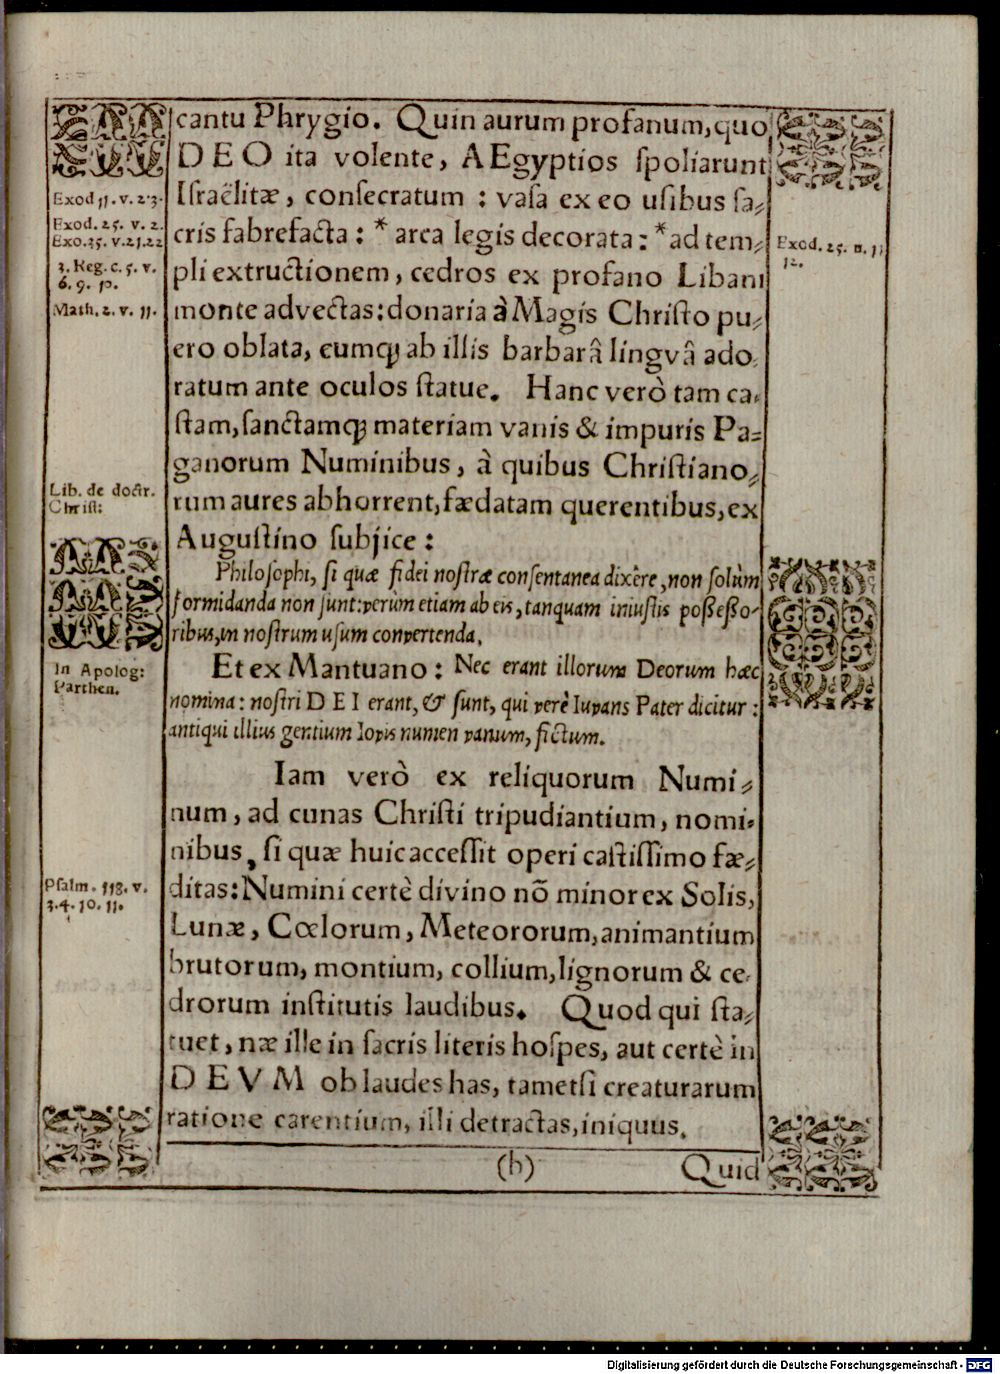 cantu Phrygio. Quin aurum profanum, quo
DEO ita volente, AEgyptios spoliarunt
Iſraëlitæ, conſecratum : vaſa ex eo uſibus ſa⸗
cris fabrefacta : * arca legis decorata : * ad tem⸗
pli extructionem, cedros ex profano Libani
monte advectas: donaria à Magis Chriſto pu⸗
ero oblata, eumq́; ab illis barbarâ lingvâ ado⸗
ratum ante oculos ſtatue. Hanc verò tam ca⸗
ſtam, ſanctamq́; materiam vanis & impuris Pa⸗
ganorum Numinibus, à quibus Chriſtiano⸗
rum aures abhorrent, fædatam querentibus, ex
Auguſtino ſubjice :
Philoſophi, ſi quæ fidei noſtræ conſentanea dixêre, non ſolùm
formidanda non ſunt: verùm etiam ab eis, tanquam iniuſtis poßeßo-
ribus, in noſtrum uſum convertenda.
Et ex Mantuano : Nec erant illorum Deorum hæc
nomina: noſtri DEI erant, & ſunt, qui verè Iuvans Pater dicitur :
antiqui illius gentium Iovis numen vanum, fictum.
Iam verò ex reliquorum Numi⸗
num, ad cunas Chriſti tripudiantium, nomi⸗
nibus, ſi quæ huic acceſſit operi caſtiſſimo fæ⸗
ditas: Numini certè divino nō minor ex Solis,
Lunæ, Cœlorum, Meteororum, animantium
brutorum, montium, collium, lignorum & ce⸗
drorum inſtitutis laudibus. Quod qui ſta⸗
tuet, næ ille in ſacris literis hoſpes, aut certè in
DEVM ob laudes has, tametſi creaturarum
ratione carentium, illi detractas, iniquus.
(b) Quid
Exod 11. v. 2.3.
Exod. 25. v. 2.
Exo. 35. v. 21.22
3. Reg. c. 5. v.
6. 9. 10.
Math. 2. v. 11.
Lib. de doctr.
Chriſt:
In Apolog:
Parthen.
Pſalm. 118. v.
3. 4. 10. 11.
Exod. 25. n. 11
12.
Digitalisierung gefördert durch die Deutsche Forschungsgemeinschaft - DFG